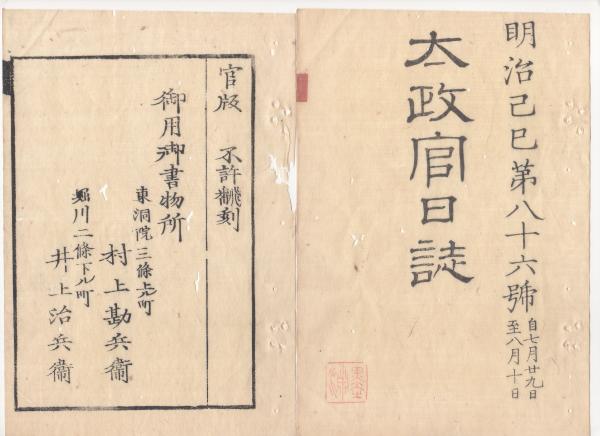 明治己巳第八十六號
自七月廿九日
至八月十日
太政官日誌
官版 不許飜刻
御用御書物所
東洞院三條上ル町
村上勘兵衞
堀川二條下ル町
井上治兵衞